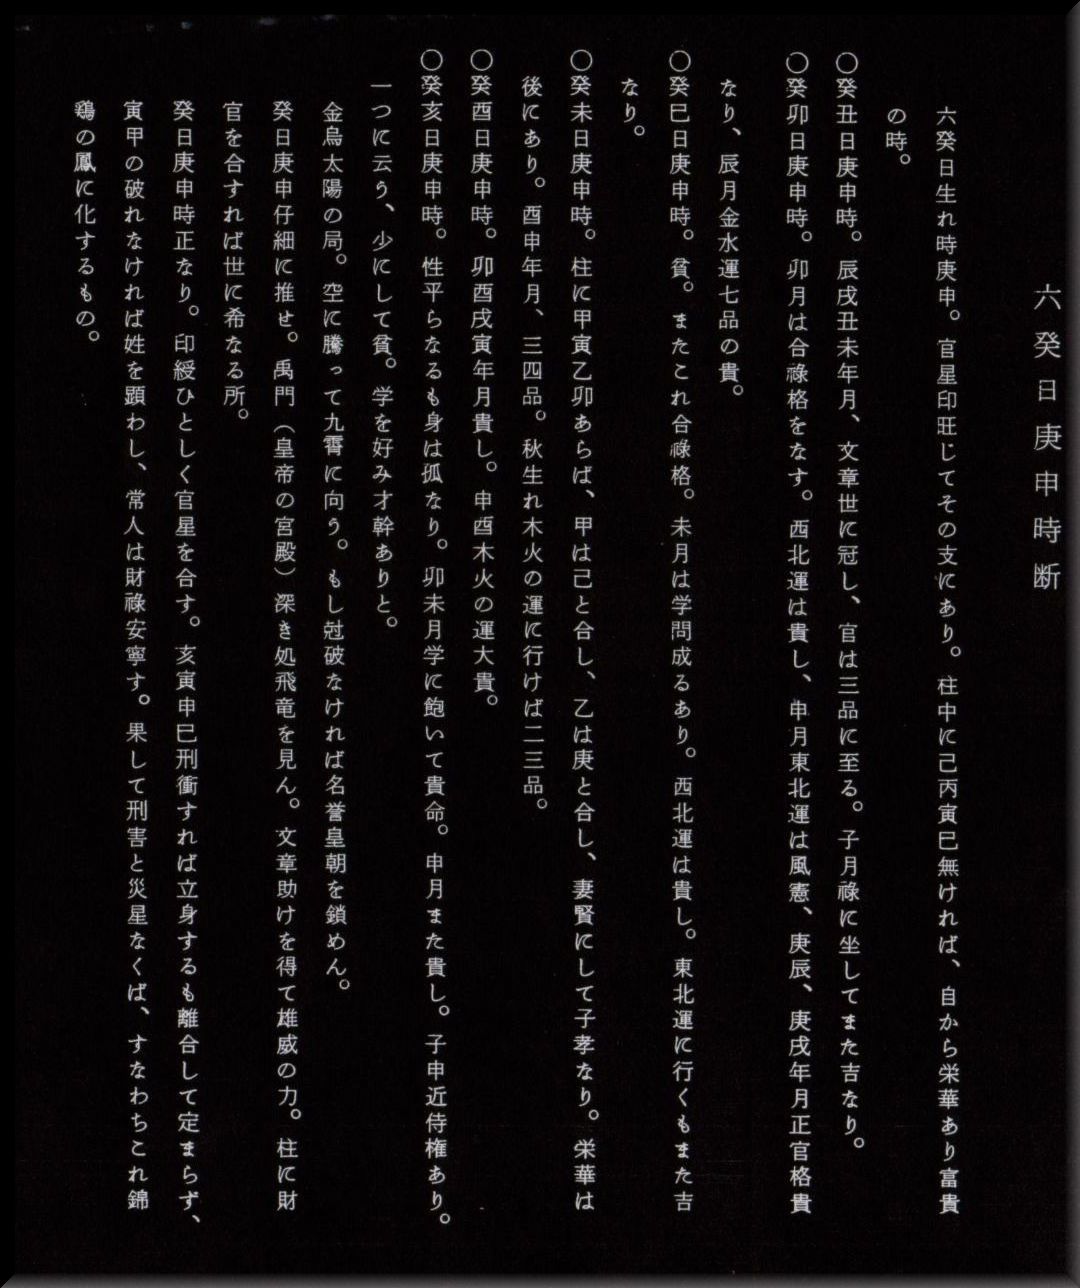 六癸日庚申時断
六癸日生れ時庚申。官星印旺じてその支にあり。柱中に己丙寅巳無ければ、自から栄華あり富貴
の時。
○癸丑日庚申時。辰戌丑未年月、文章世に冠し、官は三品に至る。子月祿に坐してまた吉なり。
○癸卯日庚申時。卯月は合祿格をなす。西北運は貴し、申月東北運は風憲、庚辰、庚戌年月正官格貴
なり、辰月金水運七品の貴。
○癸巳日庚申時。貧。またこれ合祿格。未月は学問成るあり。西北運は貴し。東北運に行くもまた吉
なり。
○癸未日庚申時。柱に甲寅乙卯あらば、甲は己と合し、乙は庚と合し、妻賢にして子孝なり。栄華は
後にあり。酉申年月、三四品。秋生れ木火の運に行けば二三品。
○癸酉日庚申時。卯酉戌寅年月貴し。申酉木火の運大貴。
○癸亥日庚申時。性平らなるも身は孤なり。卯未月学に飽いて貴命。申月また貴し。子申近侍権あり。
一つに云う、少にして貧。学を好み才幹ありと。
金烏太陽の局。空に騰って九霄に向う。もし尅破なければ名誉皇朝を鎖めん。
癸日庚申仔細に推せ。禹門（皇帝の宮殿）深き処飛竜を見ん。文章助けを得て雄威の力。柱に財
官を合すれば世に希なる所。
癸日庚申時正なり。印綬ひとしく官星を合す。亥寅申巳刑衝すれば立身するも離合して定まらず、
寅甲の破れなければ姓を顕わし、常人は財祿安寧す。果して刑害と災星なくば、すなわちこれ錦
鶏の鳳に化するもの。